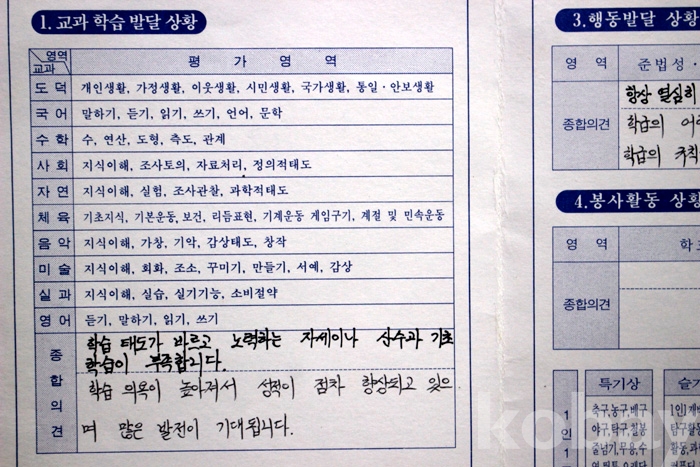 1. 교과 학습 발달 상황
영역
교과
평 가 영 역
도 덕 개인생활, 가정생활, 이웃생활, 시민생활, 국가생활, 통일·안보생활
국 어 말하기, 듣기, 읽기, 쓰기, 언어, 문학
수 학 수, 연산, 도형, 측도, 관계
사 회 지식이해, 조사토의, 자료처리, 정의적태도
자 연 지식이해, 실험, 조사관찰, 과학적태도
체 육 기초지식, 기본운동, 보건, 리듬표현, 기계운동 게임구기, 계절 및 민속운동
음 악 지식이해, 가창, 기악, 감상태도, 창작
미 술 지식이해, 회화, 조소, 꾸미기, 만들기, 서예, 감상
실 과 지식이해, 실습, 실기기능, 소비절약
영 어 듣기, 말하기, 읽기, 쓰기
종합의견
학습 태도가 바르고 노력하는 자세이나 산수과 기초
학습이 부족합니다.
학습 의욕이 높아져서 성적이 점차 향상되고 있으
며 많은 발전이 기대됩니다.
3. 행동발달 상황
영 역 준법성·
종합의견
항상 열심히
학급의
학급의 규칙
4. 봉사활동 상황
영 역
종합의견
특기상
축구,농구,배구
야구,탁구,칠봉
줄넘기,무용,수
1
인
1